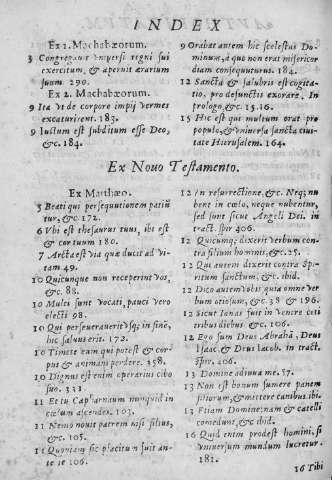 INDEX
Ex 1. Machabæorum.
3 Congregaut Vniversi regni sui
exercitum, & aperuit ærarium
suum 290.
Ex 2. Machabæorum.
9 Ita Vt de corpore impij Vermes
excaturirent. 183.
9 Iustum est subditum esse Deo,
&c. 184.
9 Orabat autem hic scelestus Do-
minum, à quo non erat misericor
diam consequuturus. 184.
12 Sancta & salubris est cogita-
tio, pro defunctis exorare. In
prologo, &c. 15. 16.
15 Hic est qui multum orat pro
populo, & Vniversa sancta ciui-
tate Hierusalem. 164.
Ex Nouo Testamento.
Ex Matthæo.
5 Beati qui persequutionem patiũ
tur, &c. 172.
6 Vbi est thesaurus tuus, ibi est
& cor tuum 180.
7 Arcta est via quæ ducit ad Vi-
tam 49.
10 Quicunque non receperit Vos,
&c. 88.
10 Multi sunt Vocati, pauci Vero
electi 98.
10 Qui perseuerauerit Vsq; in finẽ,
hic saluus erit. 172.
10 Timete eum qui potest & cor
pus & animam perdere. 158.
10 Dignus est enim operarius cibo
suo. 331.
11 Et tu Capharnaum nunquid in
cœlum ascendes. 103.
11 Nemo nouit patrem nisi filius,
&c. 105.
11 Quoniam sic placitum fuit an-
te te 106.
12 In resurrectione, &c. Neq; nu
bent in cœlo, neque nubentur,
sed sunt sicut Angeli Dei. in
tract. spir 406.
12 Quicumq; dixerit Verbum con-
tra filium hominis, &c. 25.
12 Qui autem dixerit contra Spi-
ritum sanctum, &c. ibid.
12 Dico autem Vobis quia omne Ver
bum otiosum, &c. 38 & 196.
12 Sicut Ionas fuit in Ventre ceti
tribus diebus &c. 106.
12 Ego sum Deus Abrahã, Deus
Isaac, & Deus Iacob. in tract.
spir. 406.
13 Domine adiuua me. 57.
13 Non est bonum sumere panem
filiorum, & mittere canibus ibi.
13 Etiam Domine; nam & catelli
comedunt, &c ibid.
16 Quid enim prodest homini, si
Vniuersum mundum lucretur.
181.
16 Tibi